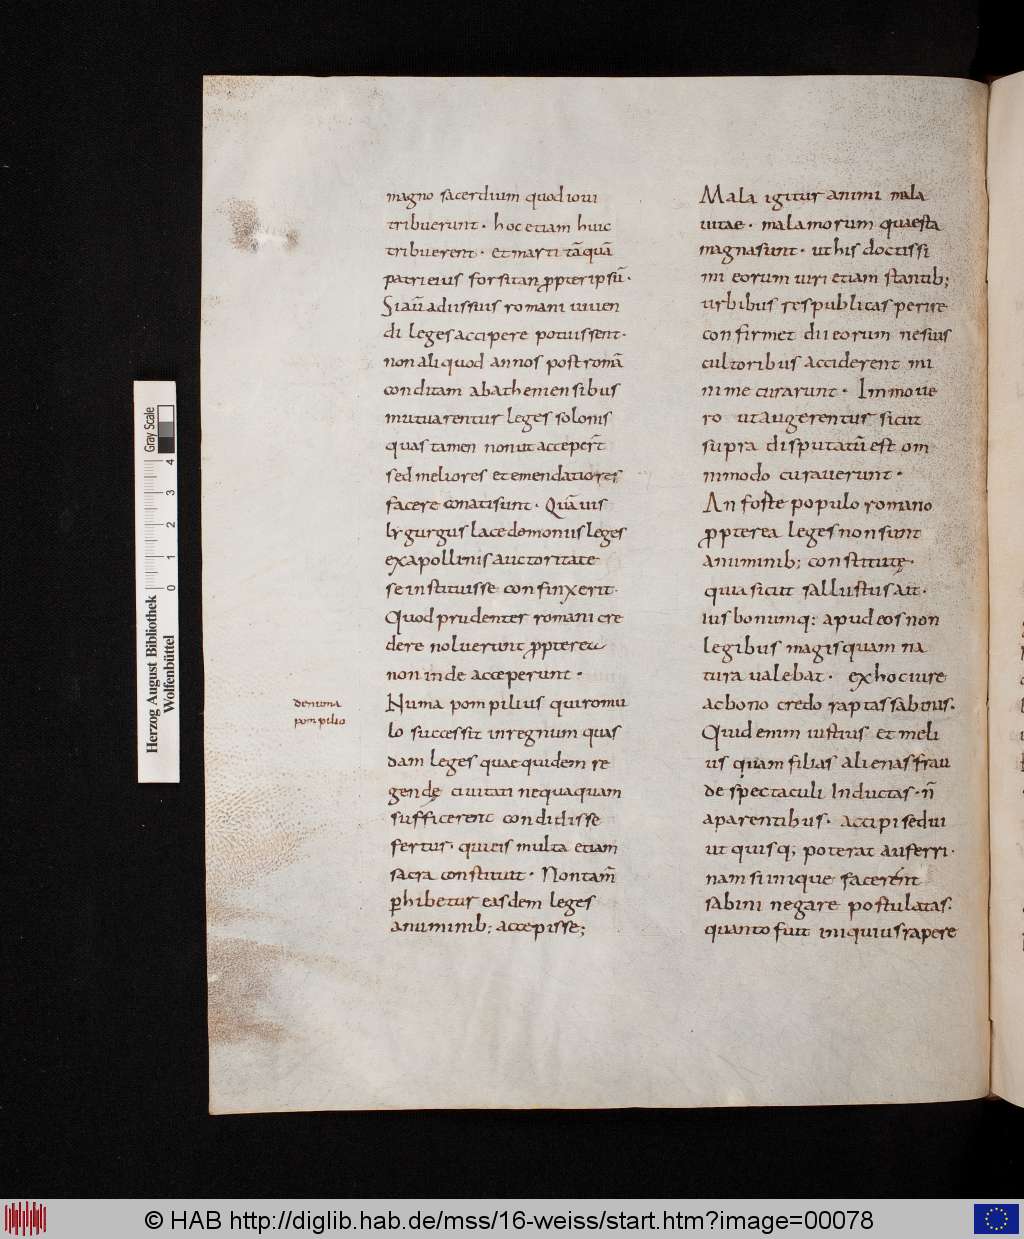 magno sacerdium quod ioui
tribuerunt· hoc etiam huic
tribuerent· et marti tāquā
patri eius forsitan ꝓpter ipsū·
Si aut̄ a diis suis romani uiuen
di leges accipere potuissent·
non aliquod annos post romā
conditam ab atheniensibus
mutuarentur leges solonis
quas tamen non ut acceper̄t
sed meliores et emendatiores
facere conati sunt· Quāuis
lygurgus lacedemoniis leges
ex apollinis auctoritate
se instituisse confinxerit·
Quod prudenter romani cre
dere noluerunt ꝓpterea
non inde acceperunt·
Numa pompilius qui romu
lo successit in regnum quas
dam leges quae quidem re
gendę ciuitati nequaquam
sufficerent condidisse
fertur· qui eis multa etiam
sacra constituit· Non tam̄
ꝑhibetur easdem leges
a numinib; accepisse;
de numa
pompilio
Mala igitur animi mala
uitae· mala morum quae sta
magna sunt· ut his doctissi
mi eorum uiri etiam stantib;
urbibus res publicas perire
confirmet dii eorum ne suis
cultoribus acciderent mi
nime curarunt· Immo ue
ro ut augerentur sicut
supra disputatū est om
nimodo curauerunt·
An forte populo romano
ꝓpterea leges non sunt
a numinib; constitutę·
quia sicut sallustius ait·
ius bonumq: apud eos non
legibus magis quam na
tura ualebat· ex hoc iure
ac bono credo raptas sabinas·
Quid enim iustius et meli
us quam filias alienas frau
de spectaculi Inductas· n̄
a parentibus· accipi sed ui
ut quisq; poterat auferri·
nam si inique facerent
sabini negare postulatas·
quanto fuit iniquius rapere
Herzog August Bibliothek
Wolfenbüttel
0 1 2 3 4
Gray Scale
© HAB http://diglib.hab.de/mss/16-weiss/start.htm?image=00078